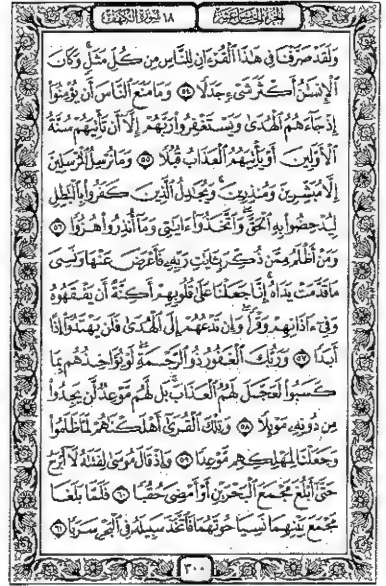 الجزء الخامس عشر
١٨ سورة الكهف
وَلَقَدْ صَرَّفْنَا فِي هَٰذَا ٱلْقُرْءَانِ لِلنَّاسِ مِن كُلِّ مَثَلٍ ۚ وَكَانَ
ٱلْإِنسَٰنُ أَكْثَرَ شَىْءٍ جَدَلًا ٥٤ وَمَا مَنَعَ ٱلنَّاسَ أَن يُؤْمِنُوٓا۟
إِذْ جَآءَهُمُ ٱلْهُدَىٰ وَيَسْتَغْفِرُوا۟ رَبَّهُمْ إِلَّآ أَن تَأْتِيَهُمْ سُنَّةُ
ٱلْأَوَّلِينَ أَوْ يَأْتِيَهُمُ ٱلْعَذَابُ قُبُلًا ٥٥ وَمَا نُرْسِلُ ٱلْمُرْسَلِينَ
إِلَّا مُبَشِّرِينَ وَمُنذِرِينَ ۚ وَيُجَٰدِلُ ٱلَّذِينَ كَفَرُوا۟ بِٱلْبَٰطِلِ
لِيُدْحِضُوا۟ بِهِ ٱلْحَقَّ ۖ وَٱتَّخَذُوٓا۟ ءَايَٰتِى وَمَآ أُنذِرُوا۟ هُزُوًا ٥٦
وَمَنْ أَظْلَمُ مِمَّن ذُكِّرَ بِـَٔايَٰتِ رَبِّهِۦ فَأَعْرَضَ عَنْهَا وَنَسِىَ
مَا قَدَّمَتْ يَدَاهُ ۚ إِنَّا جَعَلْنَا عَلَىٰ قُلُوبِهِمْ أَكِنَّةً أَن يَفْقَهُوهُ
وَفِىٓ ءَاذَانِهِمْ وَقْرًا ۖ وَإِن تَدْعُهُمْ إِلَى ٱلْهُدَىٰ فَلَن يَهْتَدُوٓا۟ إِذًا
أَبَدًا ٥٧ وَرَبُّكَ ٱلْغَفُورُ ذُو ٱلرَّحْمَةِ ۖ لَوْ يُؤَاخِذُهُم بِمَا
كَسَبُوا۟ لَعَجَّلَ لَهُمُ ٱلْعَذَابَ ۚ بَل لَّهُم مَّوْعِدٌ لَّن يَجِدُوا۟
مِن دُونِهِۦ مَوْئِلًا ٥٨ وَتِلْكَ ٱلْقُرَىٰٓ أَهْلَكْنَٰهُمْ لَمَّا ظَلَمُوا۟
وَجَعَلْنَا لِمَهْلِكِهِم مَّوْعِدًا ٥٩ وَإِذْ قَالَ مُوسَىٰ لِفَتَىٰهُ لَآ أَبْرَحُ
حَتَّىٰٓ أَبْلُغَ مَجْمَعَ ٱلْبَحْرَيْنِ أَوْ أَمْضِىَ حُقُبًا ٦٠ فَلَمَّا بَلَغَا
مَجْمَعَ بَيْنِهِمَا نَسِيَا حُوتَهُمَا فَٱتَّخَذَ سَبِيلَهُۥ فِى ٱلْبَحْرِ سَرَبًا ٦١
٣٠٠